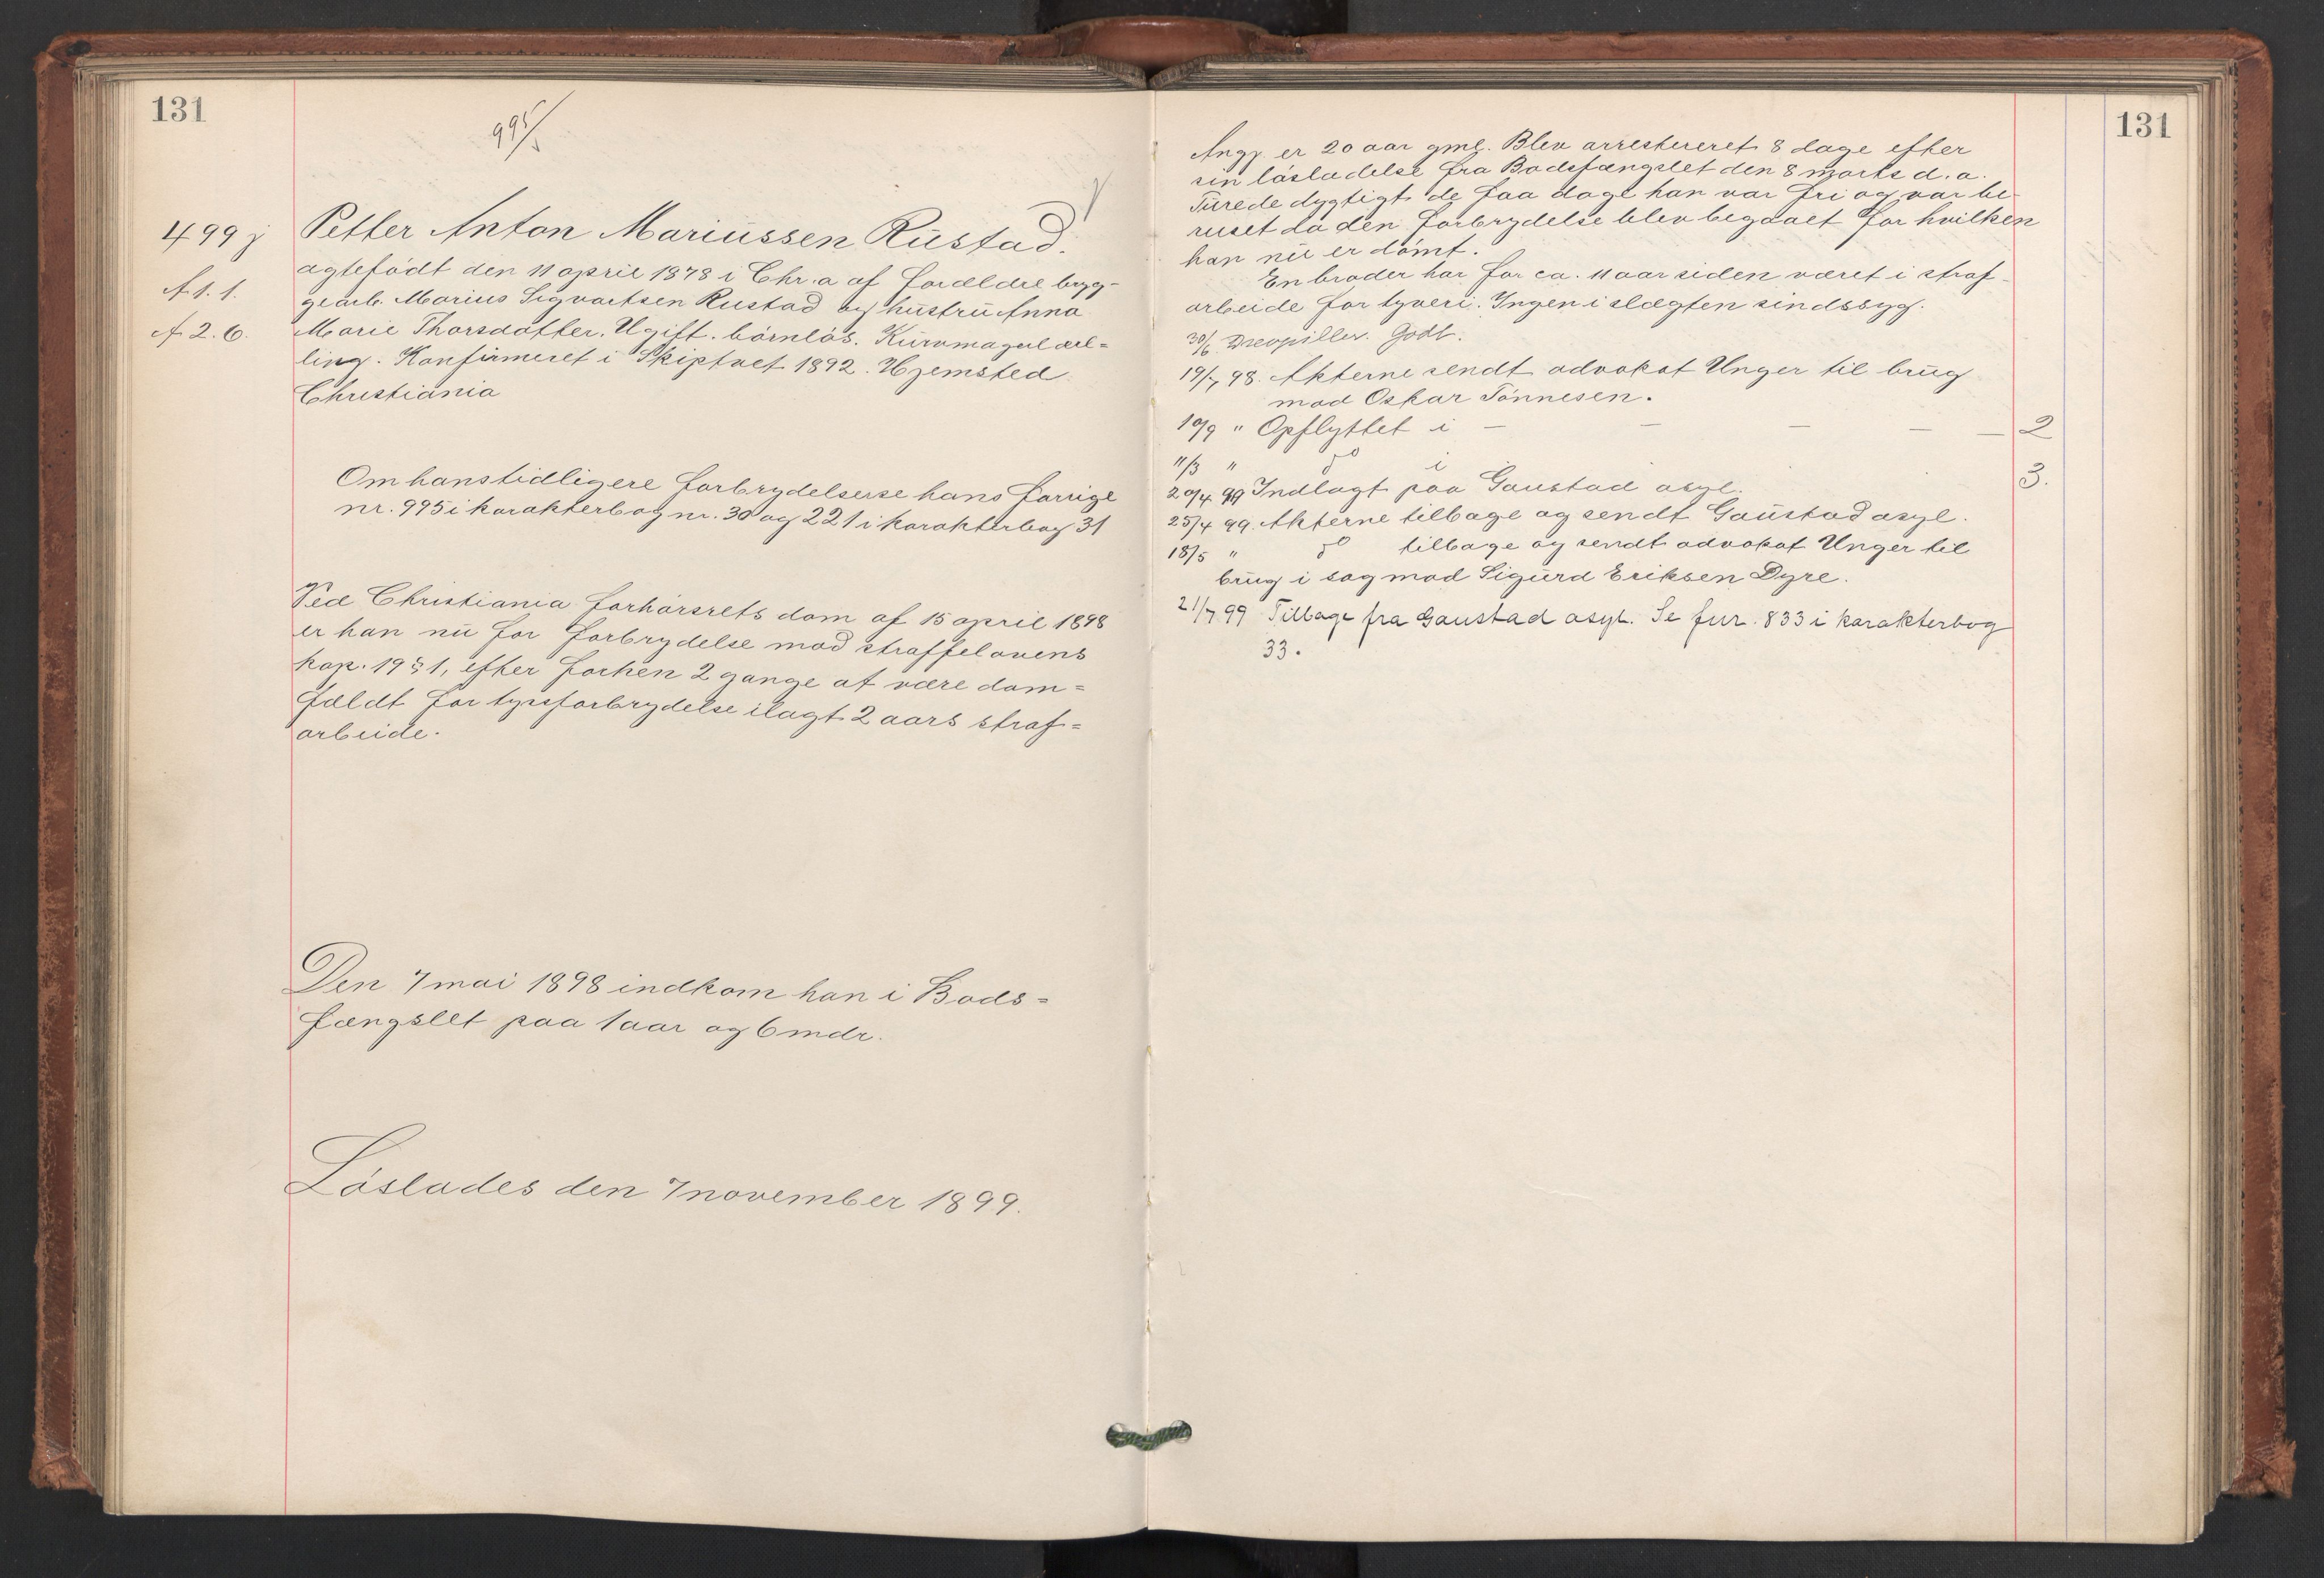 131
995/5
499 j
Petter Anton Mariussen Rustad.
A 1. 1.
A 2. 6.
ægtefødt den 11 april 1878 i Chr.a af forældre bryg-
gearb. Marius Sigvartsen Rustad og hustru Anna
Marie Thorsdatter. Ugift. børnløs. Kurvmagerlær=
ling. Konfirmeret i Skiptvet 1892. Hjemsted
Christiania
Om hans tidligere forbrydelser se hans forrige
nr. 995 i karakterbog nr. 30 og 221 i karakterbog 31
Ved Christiania forhørsrets dom af 15 april 1898
er han nu for forbrydelse mod straffelovens
kap. 19 § 1, efter forhen 2 gange at være dom=
fældt for tyvsforbrydelse ilagt 2 aars straf=
arbeide.
Den 7 mai 1898 indkom han i Bods=
fængslet paa 1 aar og 6 mdr.
Løslades den 7 november 1899.
131
Angj er 20 aar gml. Blev arresteret 8 dage efter
sin løsladelse fra Bodsfængslet den 8 marts d. a.
Turede dygtigt de faa dage han var fri og var be-
ruset da den forbrydelse blev begaaet for hvilken
han nu er dømt.
En broder har for ca. 11 aar siden været i straf-
arbeide for tyveri. Ingen i slægten sindssyg.
30/6. Drevpiller. Godt.
19/7 98. Akterne sendt advokat Unger til brug
mod Oskar Tønnesen.
10/9 " Opflyttet i — — — — — 2
11/3 " do i 3.
20/4 99 Indlagt paa Gaustad asyl.
25/4 99. Akterne tilbage og sendt Gaustad asyl.
18/5 " do tilbage og sendt advokat Unger til
brug i sag mod Sigurd Eriksen Dyre.
21/7 99 Tilbage fra Gaustad asyl. Se fnr. 833 i karakterbog
33.